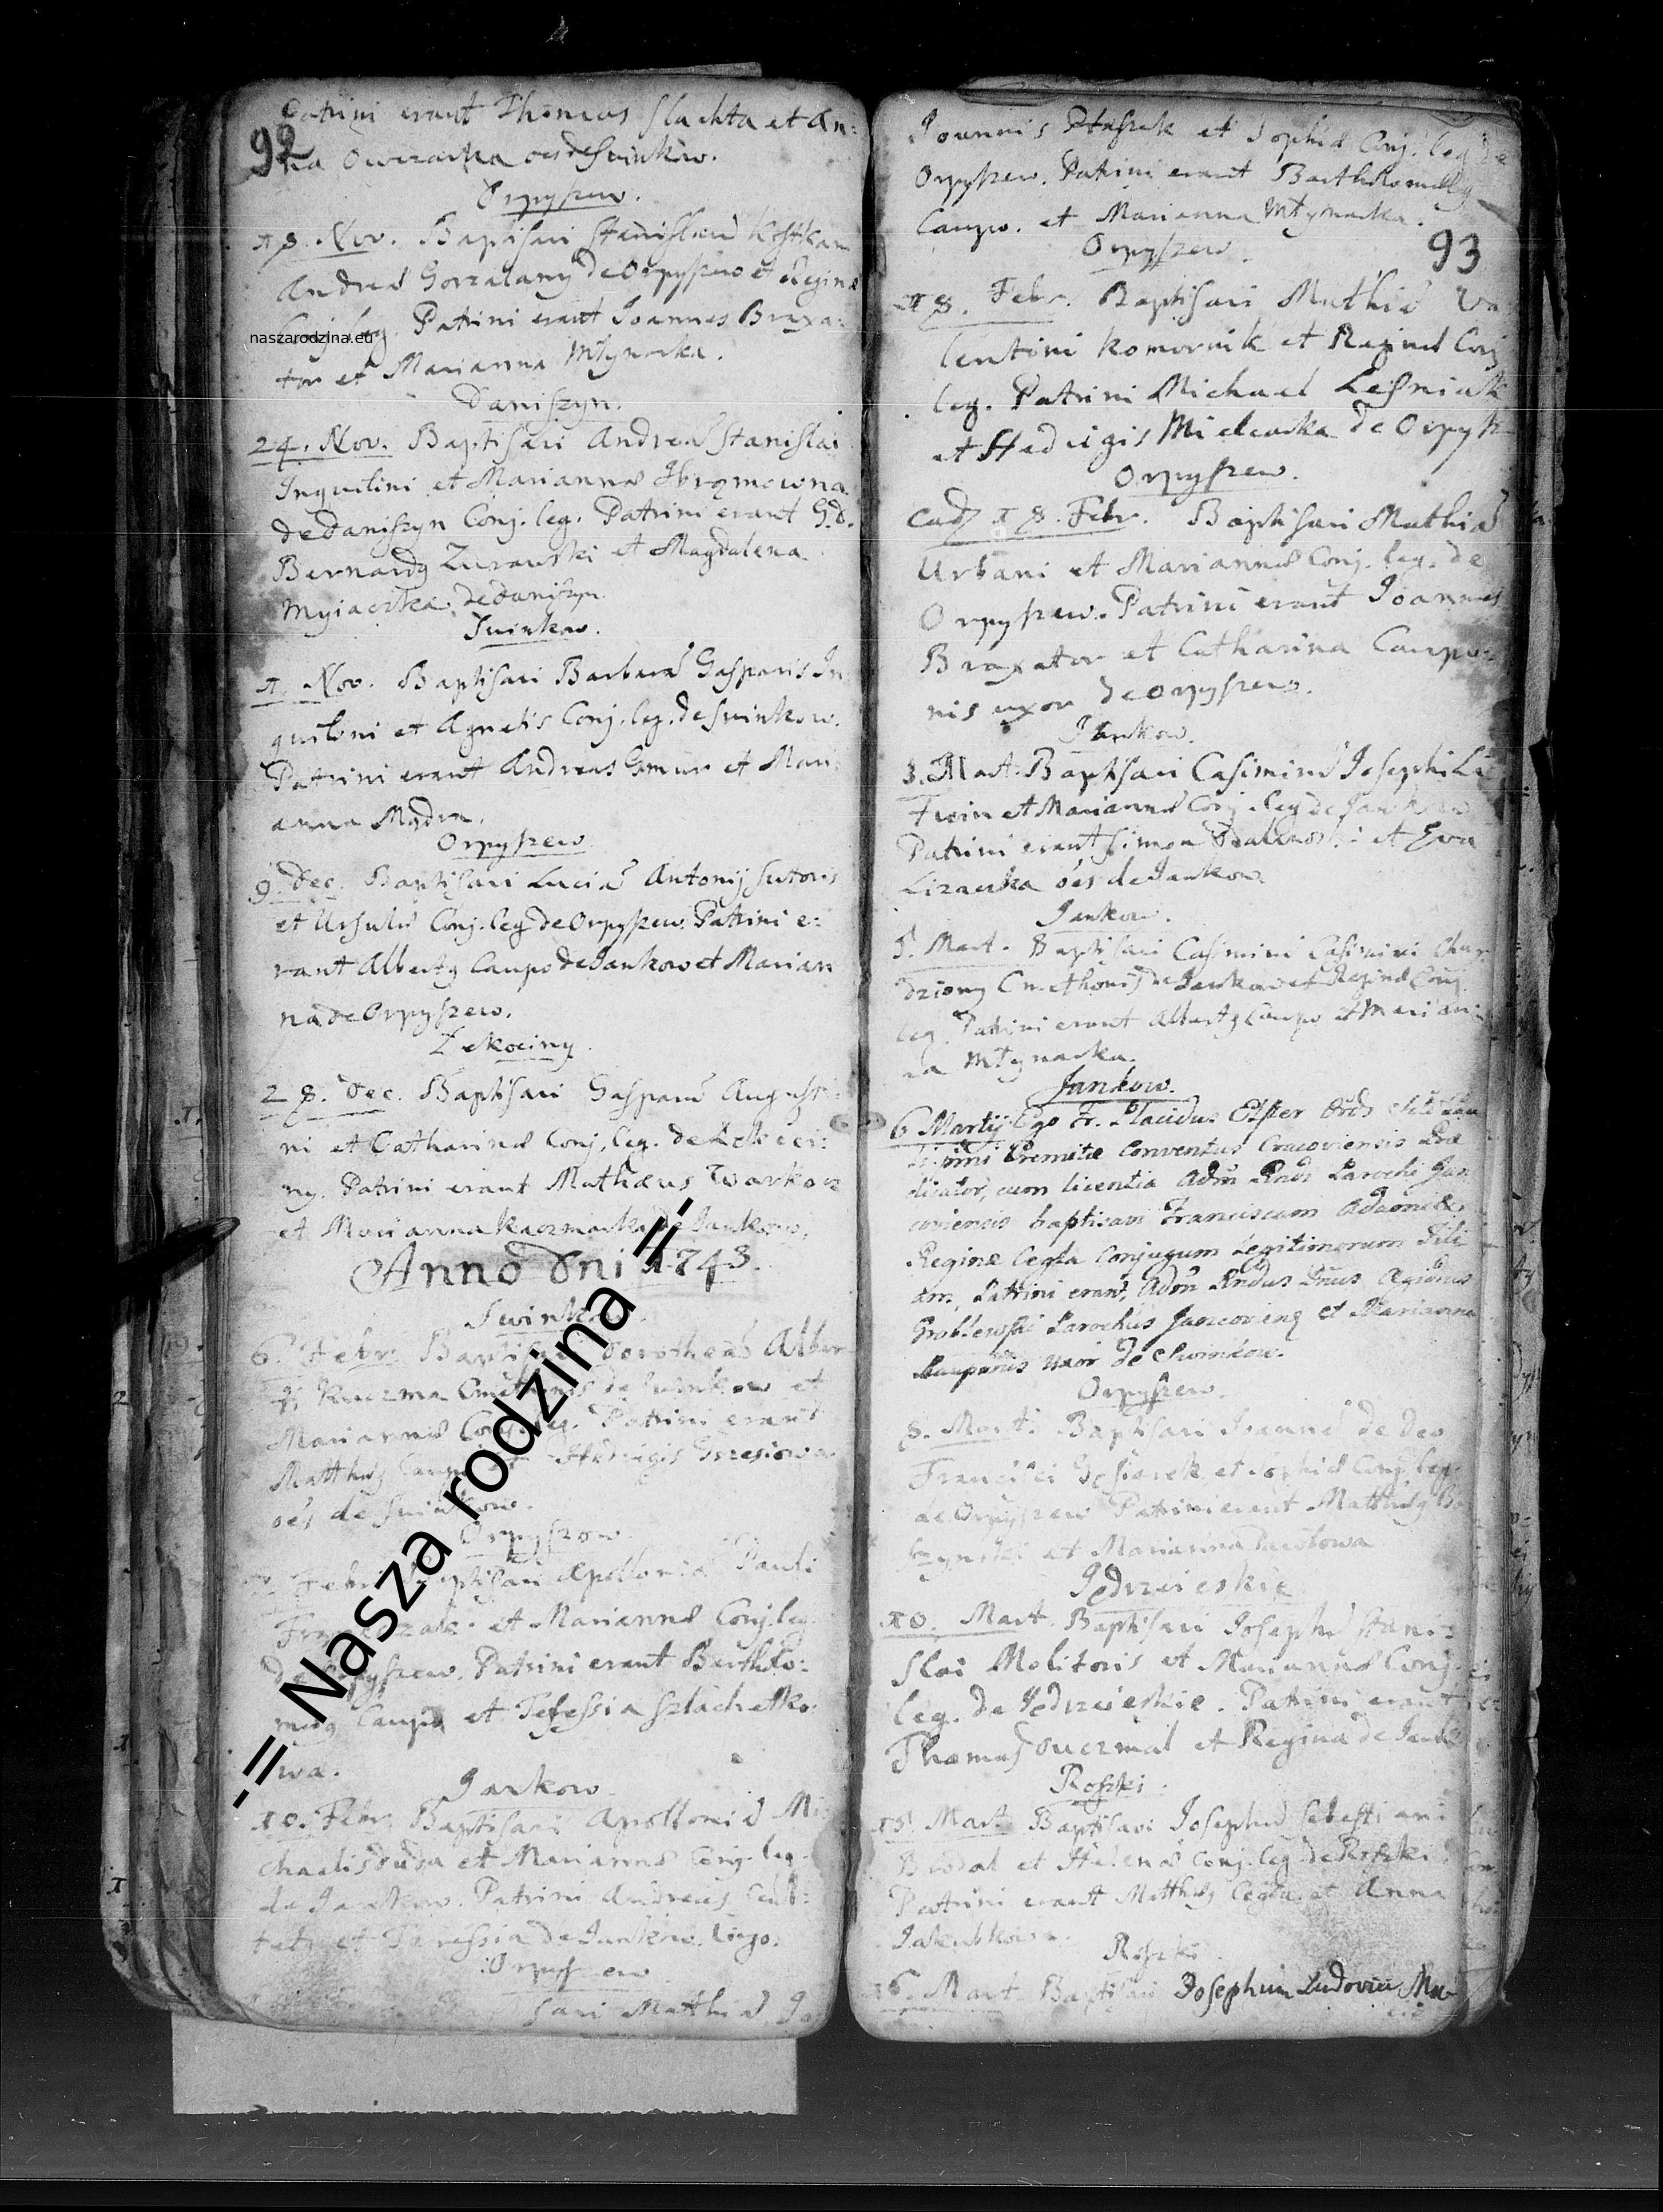 Patrini erant Thomas Slachta et An:
92
na Owczarka oēs de Swinkow.
Orpyszew.
18. Nov. Baptisavi Stanislaū Kostkam
Andreæ Gorzalany de Orpyszewo et Reginæ
Conj. leg. Patrini erant Joannes Braxa:
naszarodzina.eu
tor et Marianna Młynarka.
Daniszyn.
24. Nov. Baptisavi Andreā Stanislai
Inquilini et Mariannæ
de Daniszyn Conj. leg. Patrini erant G. D.
Bernardg Zurawski et Magdalena
de Daniszyn.
Swinkow.
1. Nov. Baptisavi Barbarā Gasparis In
quilini et Agnetis Conj. leg. de Swinkow.
Patrini erant Andreas et Mari:
anna
Orpyszew
9. Dec. Baptisavi Luciā Antonij Sutoris
et Ursulæ Conj. leg de Orpyszew. Patrini e:
rant Albertg Caupo de Jankow et Marian
na de Orpyszew.
Lekociny.
28. Dec. Baptisavi Gasparū Augusti:
ni et Catharinæ Conj. leg. de Lekoci:
ny. Patrini erant Mathæus
et Marianna Kaczmarka de Jankow.
Anno Dni 1743.
Swinkow
6. Febr. Baptisavi Dorotheā Alber
ti Kaczma Cmethonis de Swinkow et
Mariannæ Conj. leg. Patrini erant
Matthg Caupo et Hedvigis Grzesiowa
oēs de Swinkow.
Orpyszow
Febr. Baptisavi Apolloniā Pauli
et Mariannæ Conj. leg.
de Orpyszew. Patrini erant Bartholo:
meg Caupo et Teressia Szlachetko:
wa.
Jankow
10. Febr. Baptisavi Apolloniā Mi:
chaelis Duda et Mariannæ Conj. leg.
de Jankow. Patrini Andreas
et Teressia de Jankow.
Orpyszew
savi Matthiā Jo
-= Nasza rodzina =-
Joannis Ptaszek et Sophiæ Conj. leg de
Orpyszew. Patrini erant Bartholomeg
Caupo. et Marianna Młynarka.
Orpyszew.
93
18. Febr. Baptisavi Mathiā Va
lentini Komornik et Reginæ Conj
leg. Patrini Michael Lesniak
et Hedvigis Mielcarka de Orpysz
Orpyszew.
18. Febr. Baptisavi Mathiā
Urbani et Mariannæ Conj. leg. de
Orpyszew. Patrini erant Joannes
Braxator et Catharina Caupo:
nis uxor de Orpyszew.
Jankow.
3. Mart. Baptisavi Casimirū Josephi
et Mariannæ Conj. leg de Jankow
Patrini erant Simon et Ewa
oēs de Jankow
Jankow.
5. Mart. Baptisavi Casimirū Casimiri
Cmethonis de Jankow et Reginæ Conj.
leg. Patrini erant Albertg Caupo et Marian
na Młynarka.
Jankow.
6 Martij Ego Fr. Placidus
Eremitæ Conventus Cracoviensis Præ
dicator, cum licentia Adm Rndi Parochi Jan
coviensis baptisavi Franciscum
Reginæ Cegła Conjugum Legitimorum Fili
um, Patrini erant, Adm Rndus Dnus Ægidius
Groblewski Parochus et Marianna
Cauponis uxor de Swinkow.
Orpyszew.
8. Mart. Baptisavi Joannē de Deo
Francisci Gąsiorek et Sophiæ Conj. leg.
de Orpyszew Patrini erant Matthæg
et Marianna
Jedrzieiskie
10. Mart. Baptisavi Josephū Stani:
slai Molitoris et Mariannæ Conj.
leg. de Jedrzieiskie. Patrini erant
Thomas et Regina de Jank
Roszki.
15. Mart. Baptisavi Josephū Sebastiani
et Helenæ Conj. leg. de Roszki
Patrini erant Matthg Cegła et Anna
Roszki.
Mart. Baptisavi Josephum Ludovici